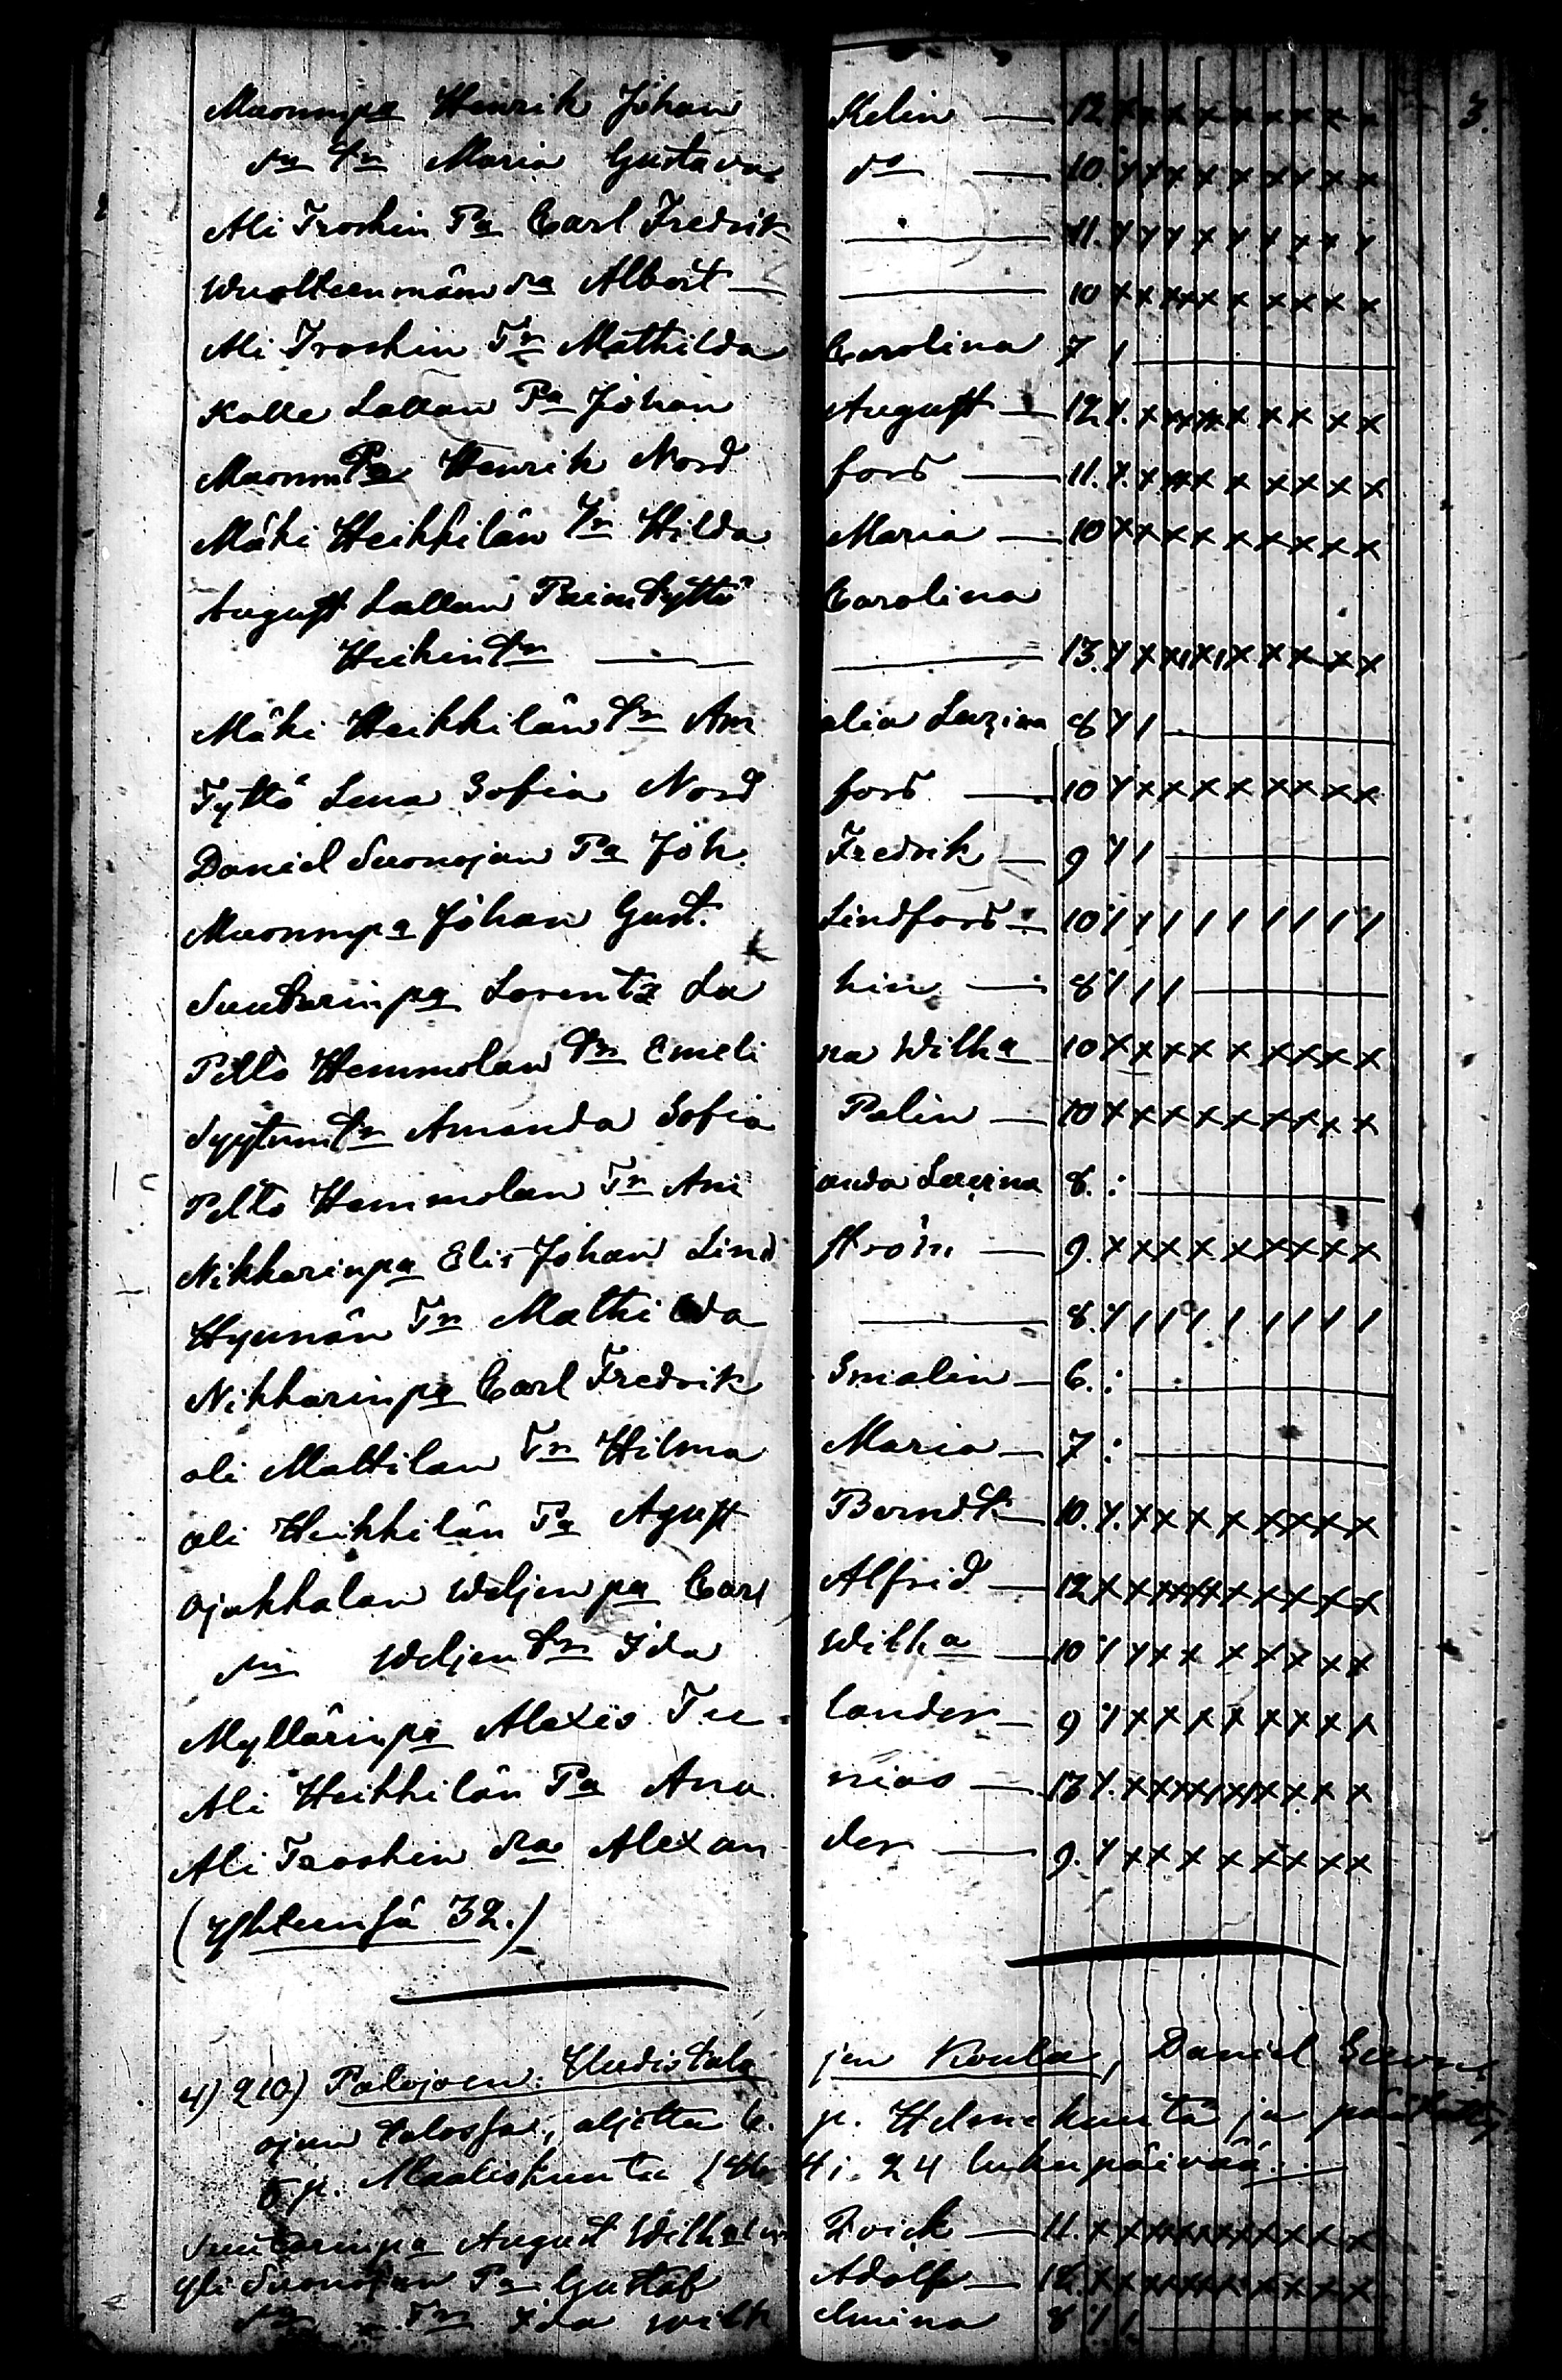 3.
Muonmpa Henrik Johan Kelin — 12 x x x x x x x x x
dn tr Maria Gustava do — 10. x x x x x x x x x
Ali Troskin Pa Carl Fredrik — 11. x x x x x x x x x
Wuolteenmäen Pa Albert — 10 x x x x x x x x x
Ali Troskin Tr Mathilda Carolina 7 /
Kalle Lallan Pa Johan August — 12 x x x x x x x x x
Muonm Pa Henrik Nord fors — 11. x x x x x x x x x
Mäki Heikkilän Tr Hilda Maria — 10 x x x x x x x x x
August Lallan Tyttö Carolina
Heikin tr — 13. x x x x x x x x x
Mäki Heikkilän tr Am alia 8 / /
Tyttö Lena Sofia Nord fors — 10 x x x x x x x x x
Daniel Suonojan Pa Joh. Fredrik — 9 / /
Muonmpa Johan Gust. Lindfors — 10 / / / / / / / / /
Suutarinpa Lorentz La hin — 8 / / /
Pelto Hemmolan tr Emeli na Wilha 10 x x x x x x x x x
Syytumtr Amanda Sofia Palin — 10 x x x x x x x x x
Pelto Hemmolan Tr Am anda 8. :
Nikkarinpa Elis Johan Lind ström — 9. x x x x x x x x x
Hynnän Tr Mathilda — 8. / / / / / / / / /
Nikkarinpa Carl Fredrik Smalin — 6. :
ali Mattilan Tr Hilma Maria — 7 :
ali Heikkilän Pa Agust Berndt — 10. x x x x x x x x x
Ojakkalan Weljenpa Carl Alfrid — 12 x x x x x x x x x
dn Weljentr Ida Wilha — 10 / x x x x x x x x
Myllärinpa Alexis Tu lander — 9 / x x x x x x x x
Ali Heikkilän Pa Ana nias — 13 x x x x x x x x x
Ali Troskin Pa Alexan der — 9. / x x x x x x x x
(Yhteensä 32.)
4) 2(0) Palojoen Uudistalo jen Koulu, Daniel Suon
ojan talossa, aljettu 6. p. Helmikuuta ja päätetty
5 p. Maaliskuuta 24 lukupäivää.
Suutarinpa August Wilhelm Qvick — 11. x x x x x x x x x
Yli Suonojan Pa Gustaf Adolf — 12. x x x x x x x x x
dn Tr Ida Wilh elmina 8 / /